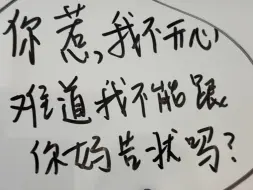 你惹,我不开心
难道我不能跟
你妈告状吗?